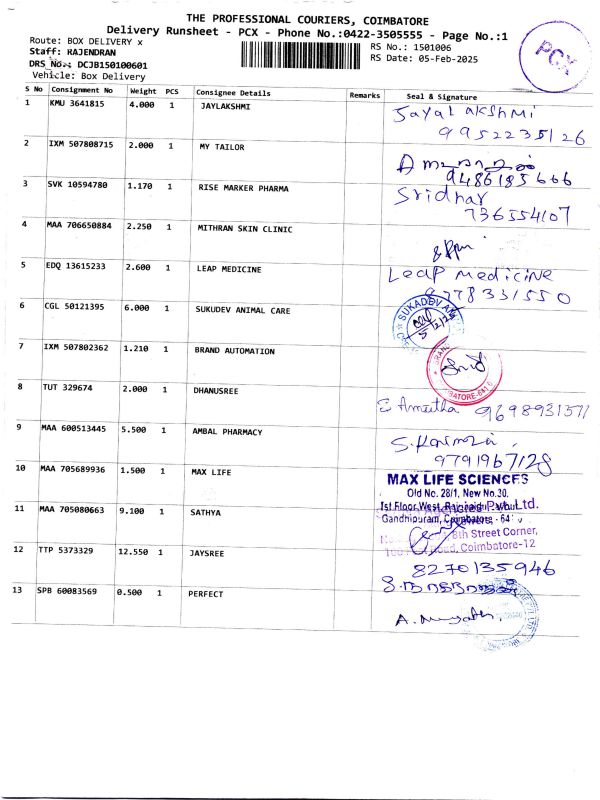 THE PROFESSIONAL COURIERS, COIMBATORE
Delivery Runsheet - PCX - Phone No.:0422-3505555 - Page No.:1
Route: BOX DELIVERY x
RS No.: 1501006
Staff: RAJENDRAN
RS Date: 05-Feb-2025
DRS No.: DCJB150100601
Vehicle: Box Delivery
PCX
S No Consignment No Weight PCS Consignee Details Remarks Seal & Signature
1 KMU 3641815 4.000 1 JAYLAKSHMI
Jayalakshmi
9952235126
2 IXM 507808715 2.000 1 MY TAILOR
9486185666
3 SVK 10594780 1.170 1 RISE MARKER PHARMA
Sridhar
736554107
4 MAA 706650884 2.250 1 MITHRAN SKIN CLINIC
5 EDQ 13615233 2.600 1 LEAP MEDICINE
Leap medicine
6 CGL 50121395 6.000 1 SUKUDEV ANIMAL CARE
SUKADEV
7 IXM 507802362 1.210 1 BRAND AUTOMATION
8 TUT 329674 2.000 1 DHANUSREE
9698931571
9 MAA 600513445 5.500 1 AMBAL PHARMACY
9791967128
10 MAA 705689936 1.500 1 MAX LIFE
MAX LIFE SCIENCES
Old No. 28/1, New No.30,
1st Floor, West
Gandhipuram, Coimbatore - 641
11 MAA 705080663 9.100 1 SATHYA
Pvt. Ltd.
8th Street Corner,
Road, Coimbatore-12
12 TTP 5373329 12.550 1 JAYSREE
8270135946
13 SPB 60083569 0.500 1 PERFECT